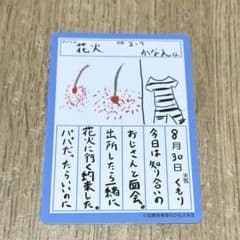 タイトル 花火
名前 2-7 かなえ
8月30日 天気 くもり
今日は知り合いの
おじさんと面会。
出所したら一緒に
花火に行く約束した。
パパだったらいいのに